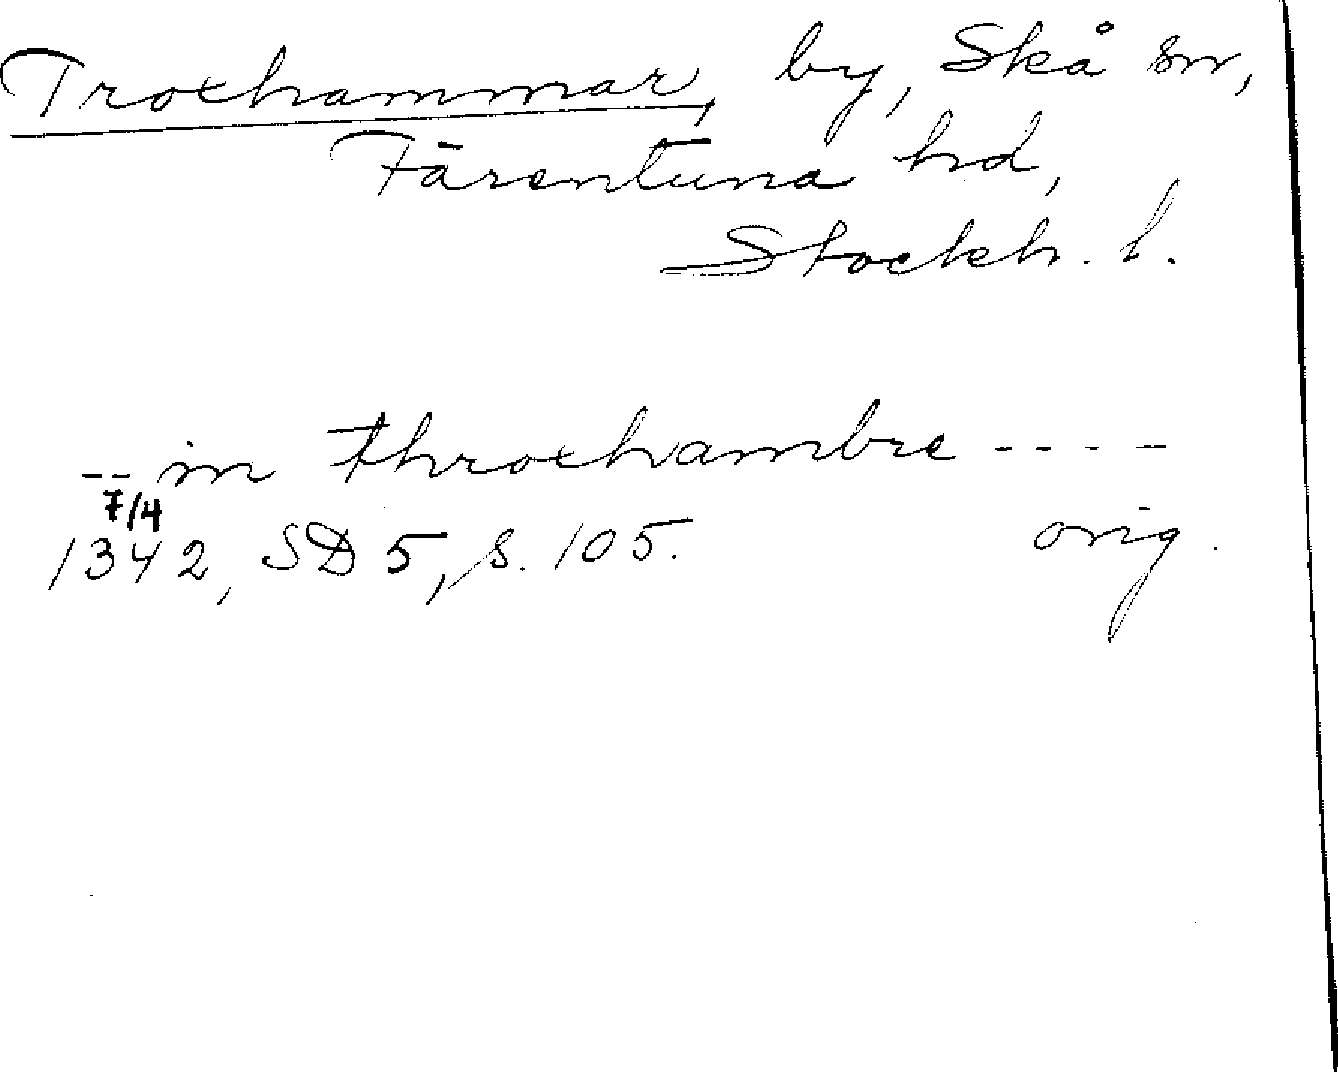 Troxhammar, by, Skå sn,
Färentuna hd,
Stockh. l.
-- in throxhambre ----
7/4
1342, SD 5, s. 105. orig.